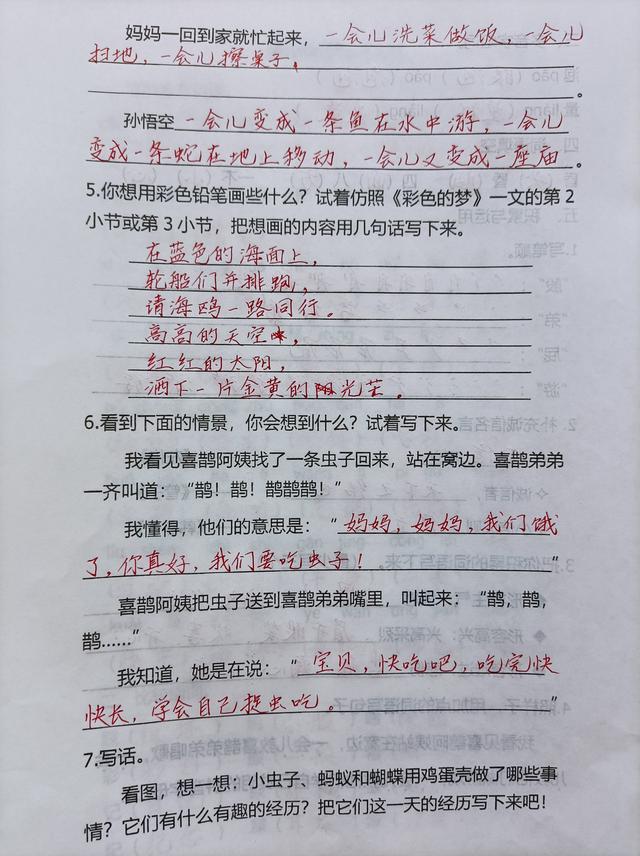 妈妈一回到家就忙起来，一会儿洗菜做饭，一会儿
扫地，一会儿擦桌子。
。
孙悟空一会儿变成一条鱼在水中游，一会儿
变成一条蛇在地上移动，一会儿又变成一座庙。
5.你想用彩色铅笔画些什么？试着仿照《彩色的梦》一文的第2
小节或第3小节，把想画的内容用几句话写下来。
在蓝色的海面上，
轮船们并排跑，
请海鸥一路同行。
高高的天空，
红红的太阳，
洒下一片金黄的阳光芒。
6.看到下面的情景，你会想到什么？试着写下来。
我看见喜鹊阿姨找了一条虫子回来，站在窝边。喜鹊弟弟
一齐叫道：“鹊！鹊！鹊鹊鹊！”
我懂得，他们的意思是：“妈妈，妈妈，我们饿
了，你真好，我们要吃虫子！”
喜鹊阿姨把虫子送到喜鹊弟弟嘴里，叫起来：“鹊，鹊，
鹊……”
我知道，她是在说：“宝贝，快吃吧，吃完快
快长，学会自己捉虫吃。”
7.写话。
看图，想一想：小虫子、蚂蚁和蝴蝶用鸡蛋壳做了哪些事
情？它们有什么有趣的经历？把它们这一天的经历写下来吧！